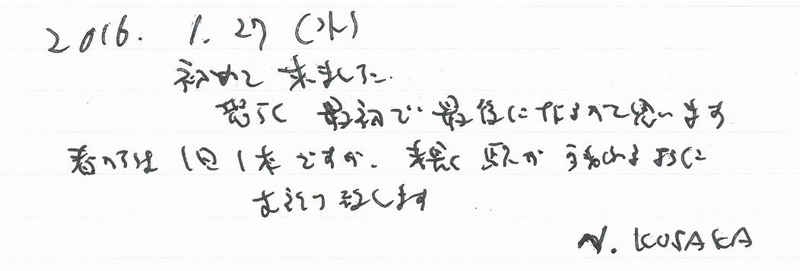 2016. 1. 27 (水)
初めて来ました.
恐らく 最初で最後になるかと思います
着くのは 1日1本ですが、末長く 駅が つづけれる ように
お祈り致します
N. KOSAKA